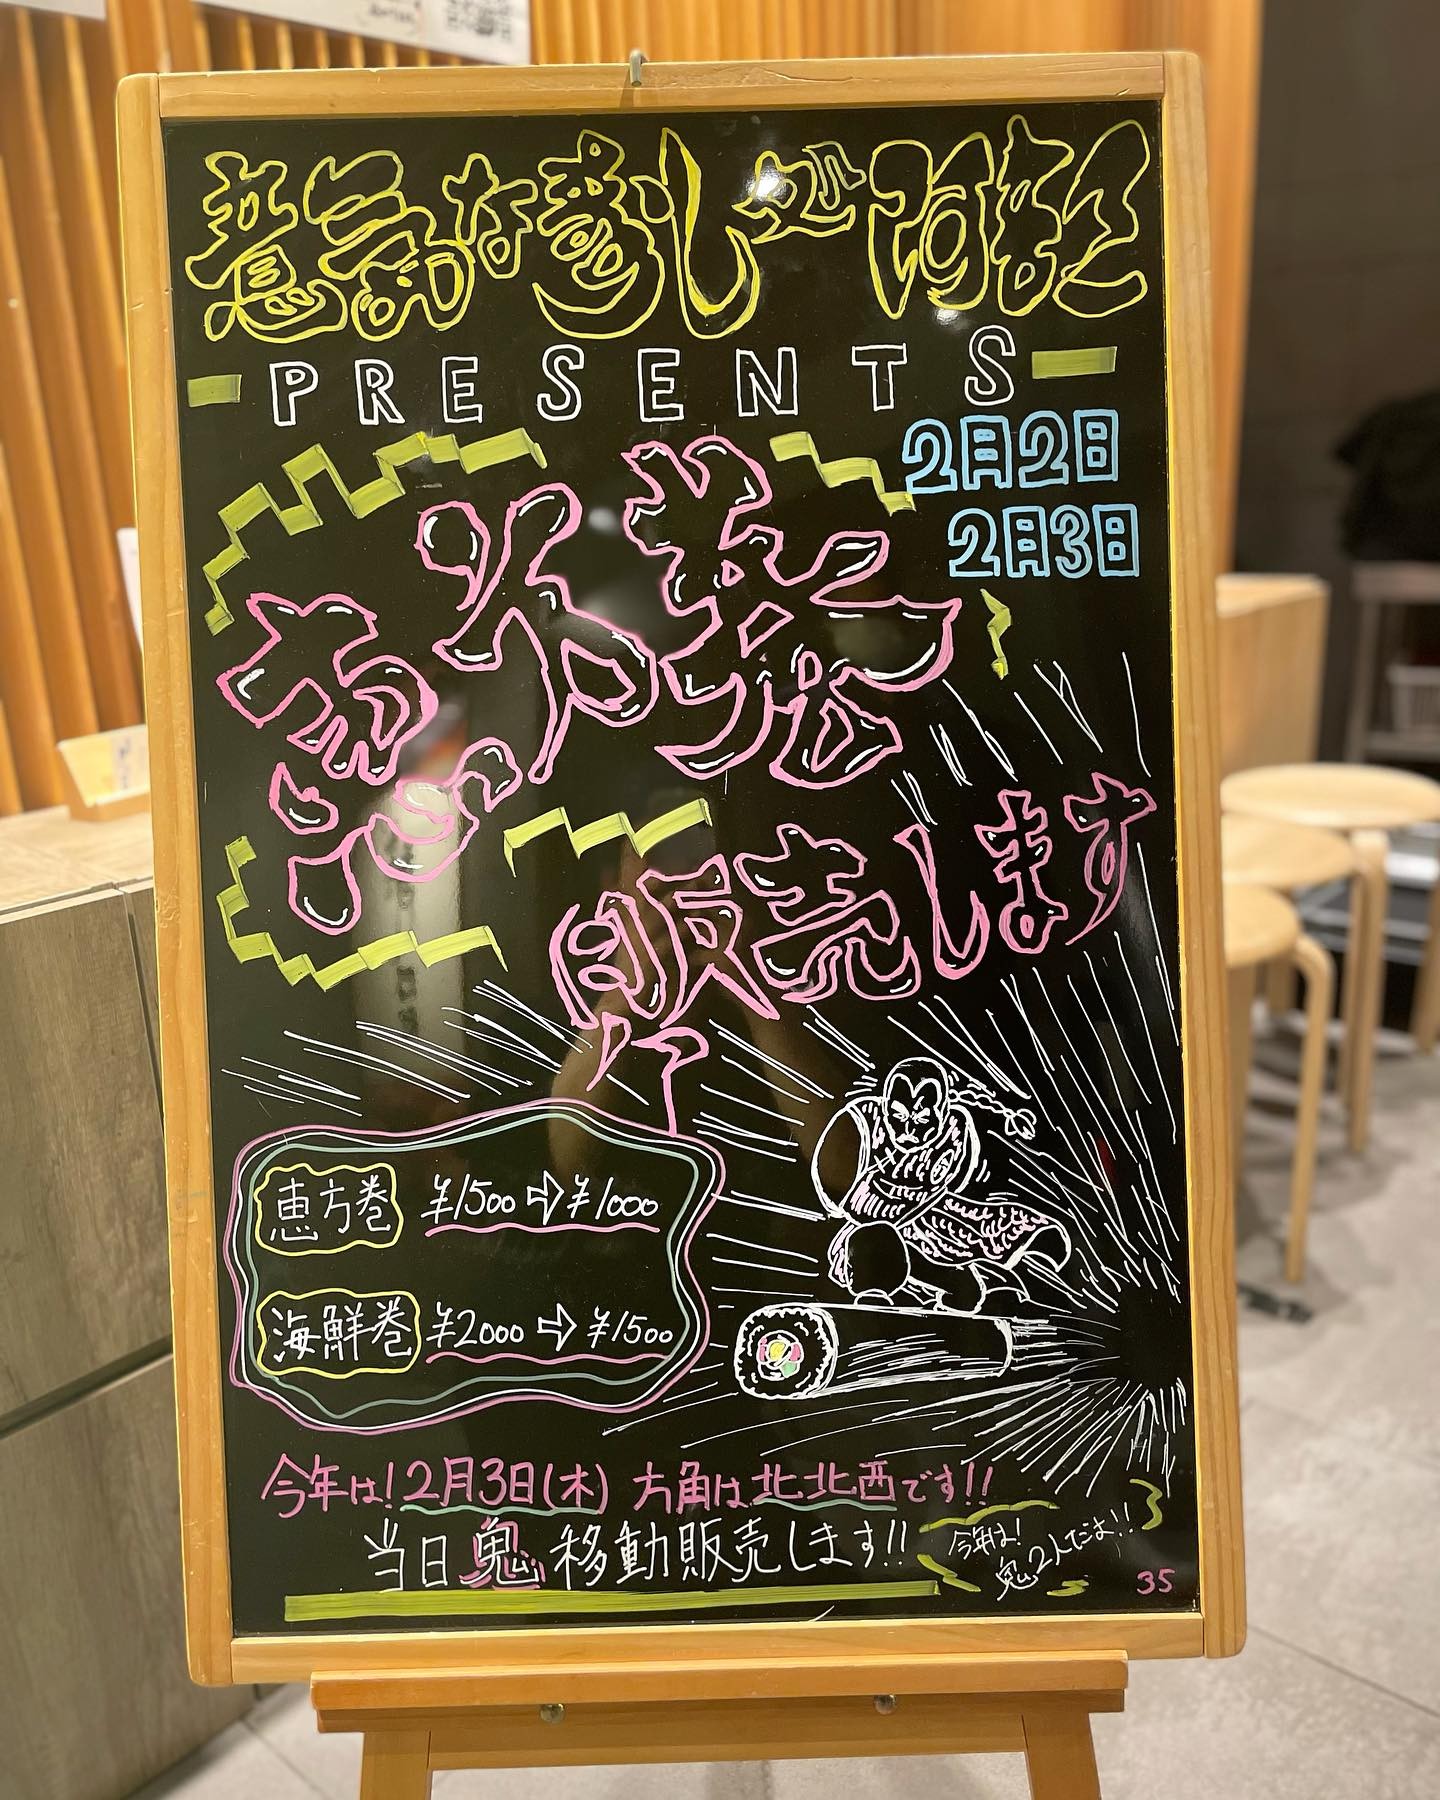 PRESENTS
2月2日
2月3日
恵方巻
販売します
恵方巻 ¥1500⇨¥1000
海鮮巻 ¥2000⇨¥1500
今年は!2月3日(木) 方角は北北西です!!
当日鬼移動販売します!!
今年は!
鬼2人だよ!!
35